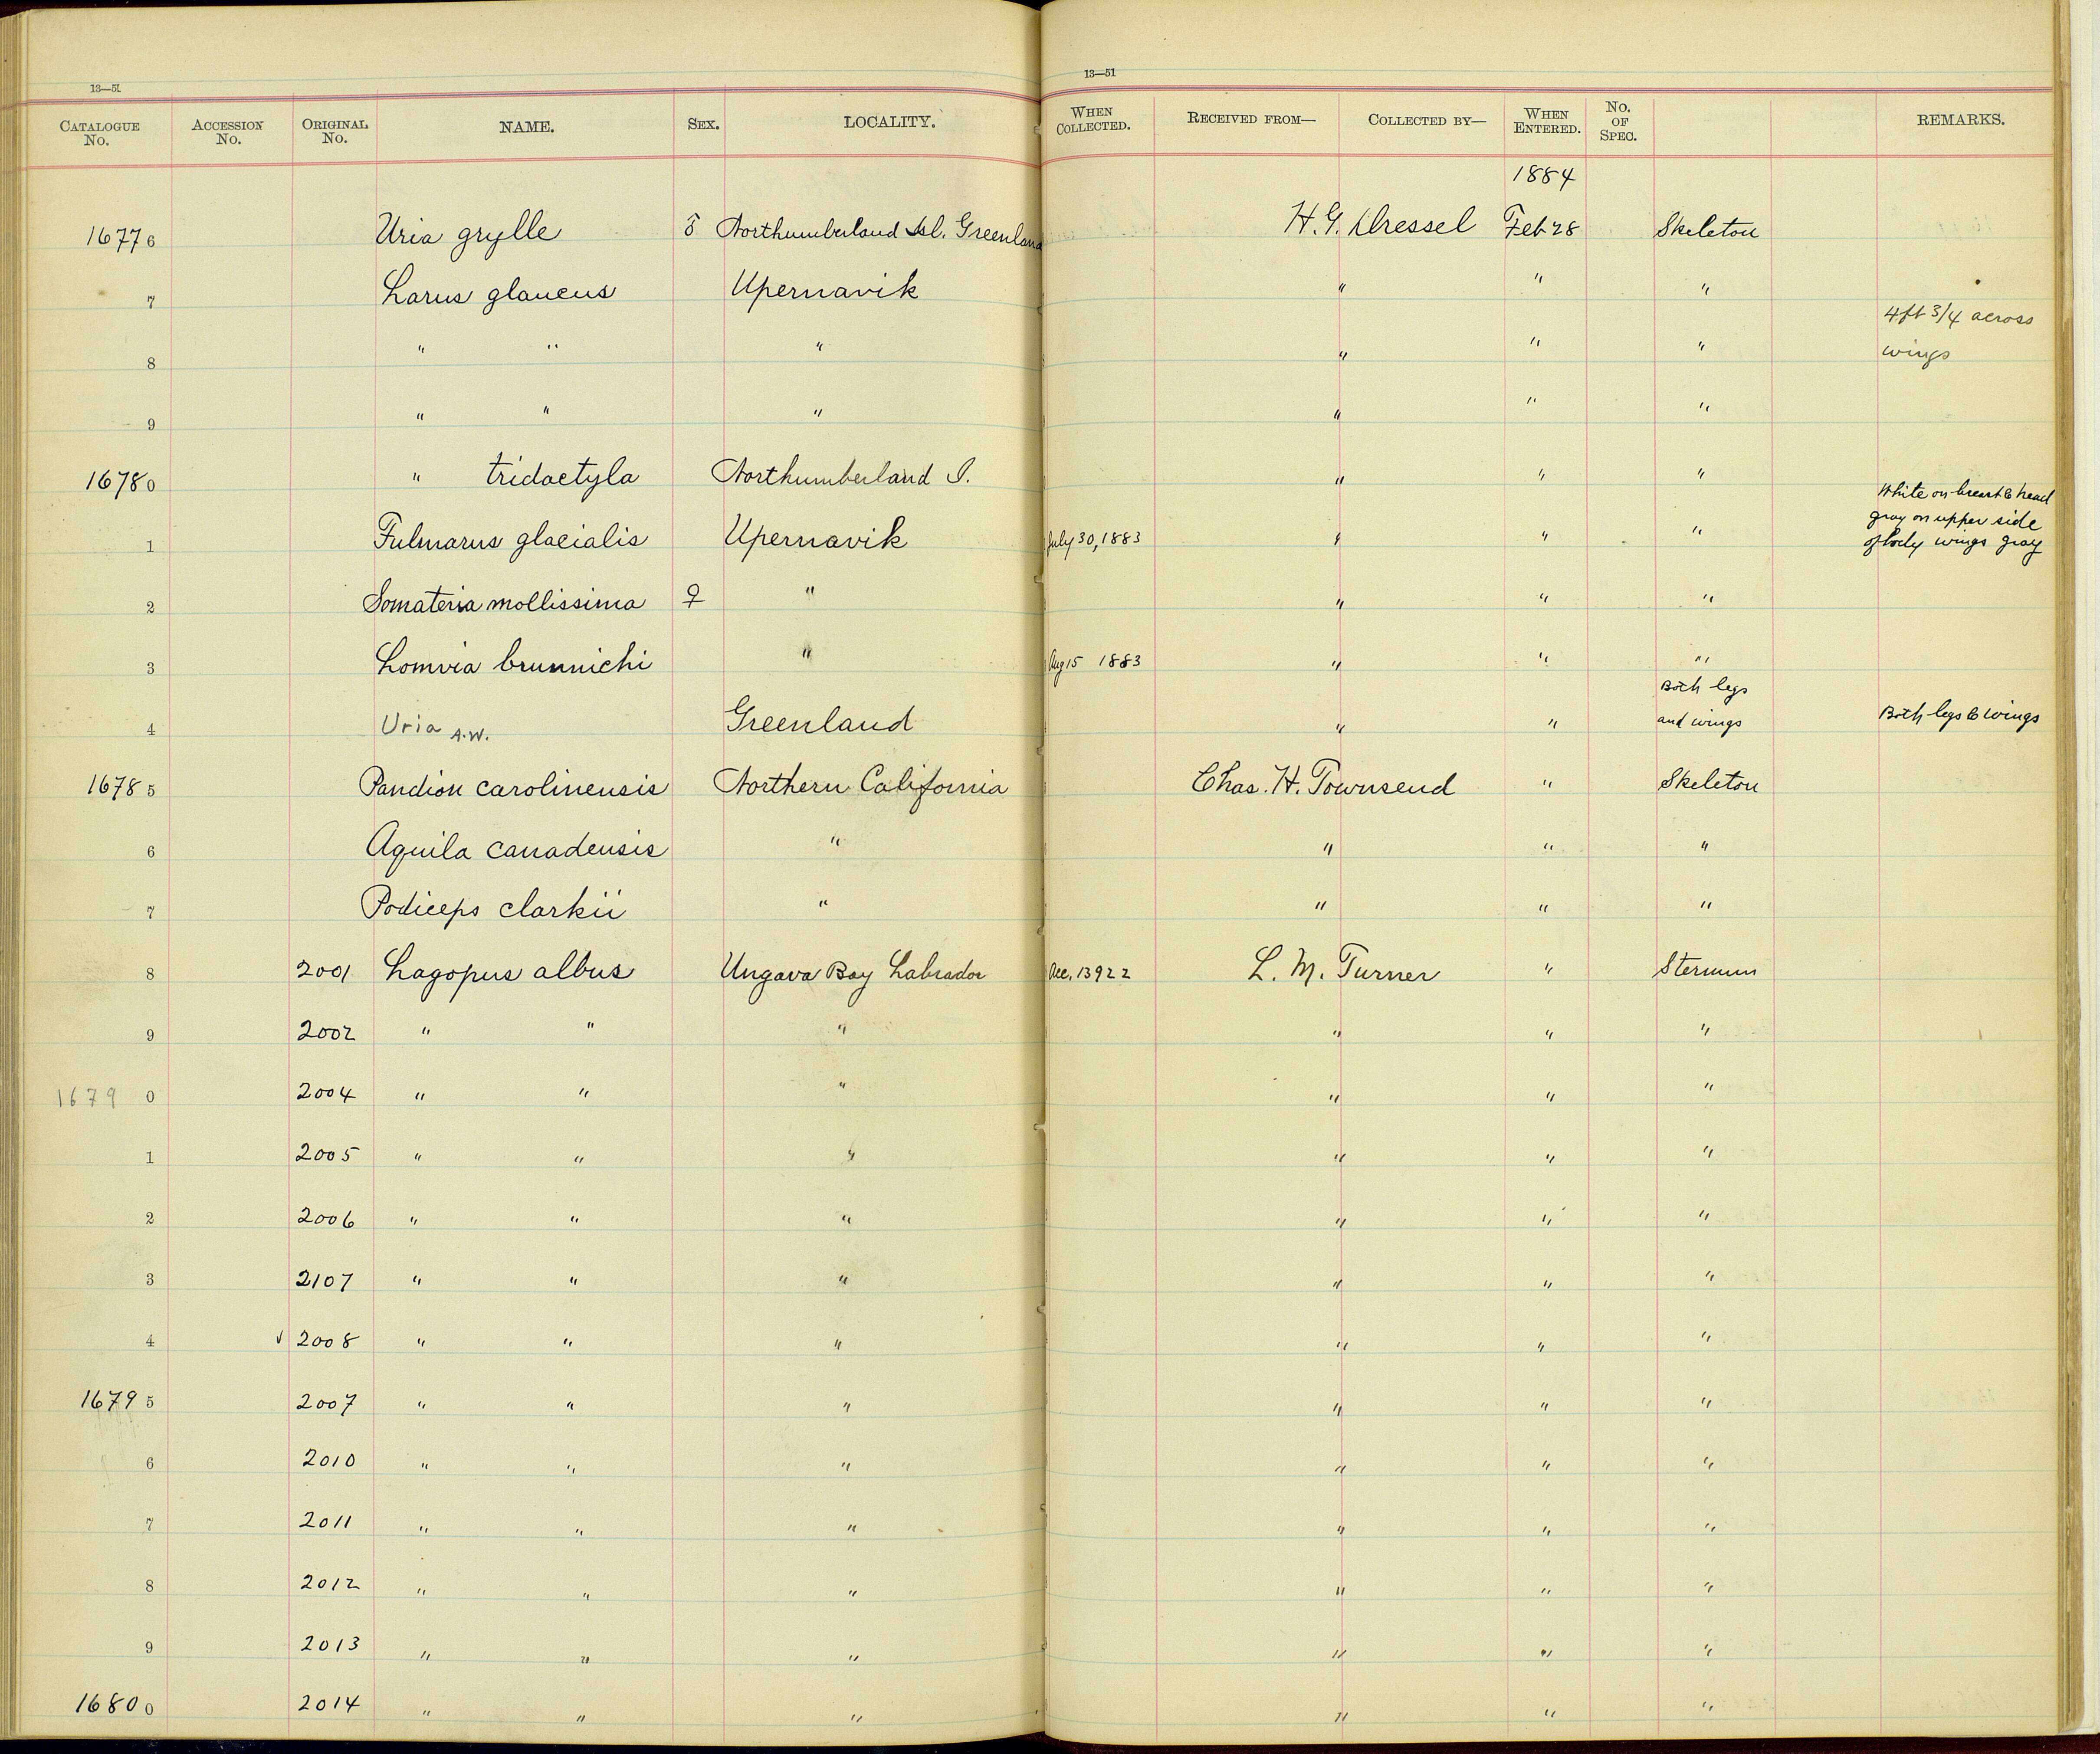 13—51 13—51
CATALOGUE No. ACCESSION No. ORIGINAL No. NAME. SEX. LOCALITY. WHEN COLLECTED. RECEIVED FROM— COLLECTED BY— WHEN ENTERED. No. OF SPEC. REMARKS.
1884
16776 Uria grylle Northumberland Isl. Greenland H. G. Dressel Feb 28 Skeleton
7 Larus glaucus Upernavik " " "
4 ft 3/4 across
8 " " " " " " wings
9 " " " " " "
16780 " tridactyla Northumberland I. " " "
White on breast & head
gray on upper side
1 Fulmarus glacialis Upernavik July 30, 1883 " " " of body wings gray
2 Somateria mollissima ♀ " " " "
3 Lomvia brunnichi " Aug 15 1883 " " "
Both legs
4 Uria A.W. Greenland " " and wings Both legs & wings
16785 Pandion carolinensis Northern California Chas. H. Townsend " Skeleton
6 Aquila canadensis " " " "
7 Podiceps clarkii " " " "
8 2001 Lagopus albus Ungava Bay Labrador Acc. 13922 L. M. Turner " Sternum
9 2002 " " " " " "
1679 0 2004 " " " " " "
1 2005 " " " " " "
2 2006 " " " " " "
3 2107 " " " " " "
4 √ 2008 " " " " " "
16795 2007 " " " " " "
6 2010 " " " " " "
7 2011 " " " " " "
8 2012 " " " " " "
9 2013 " " " " " "
16800 2014 " " " " " "